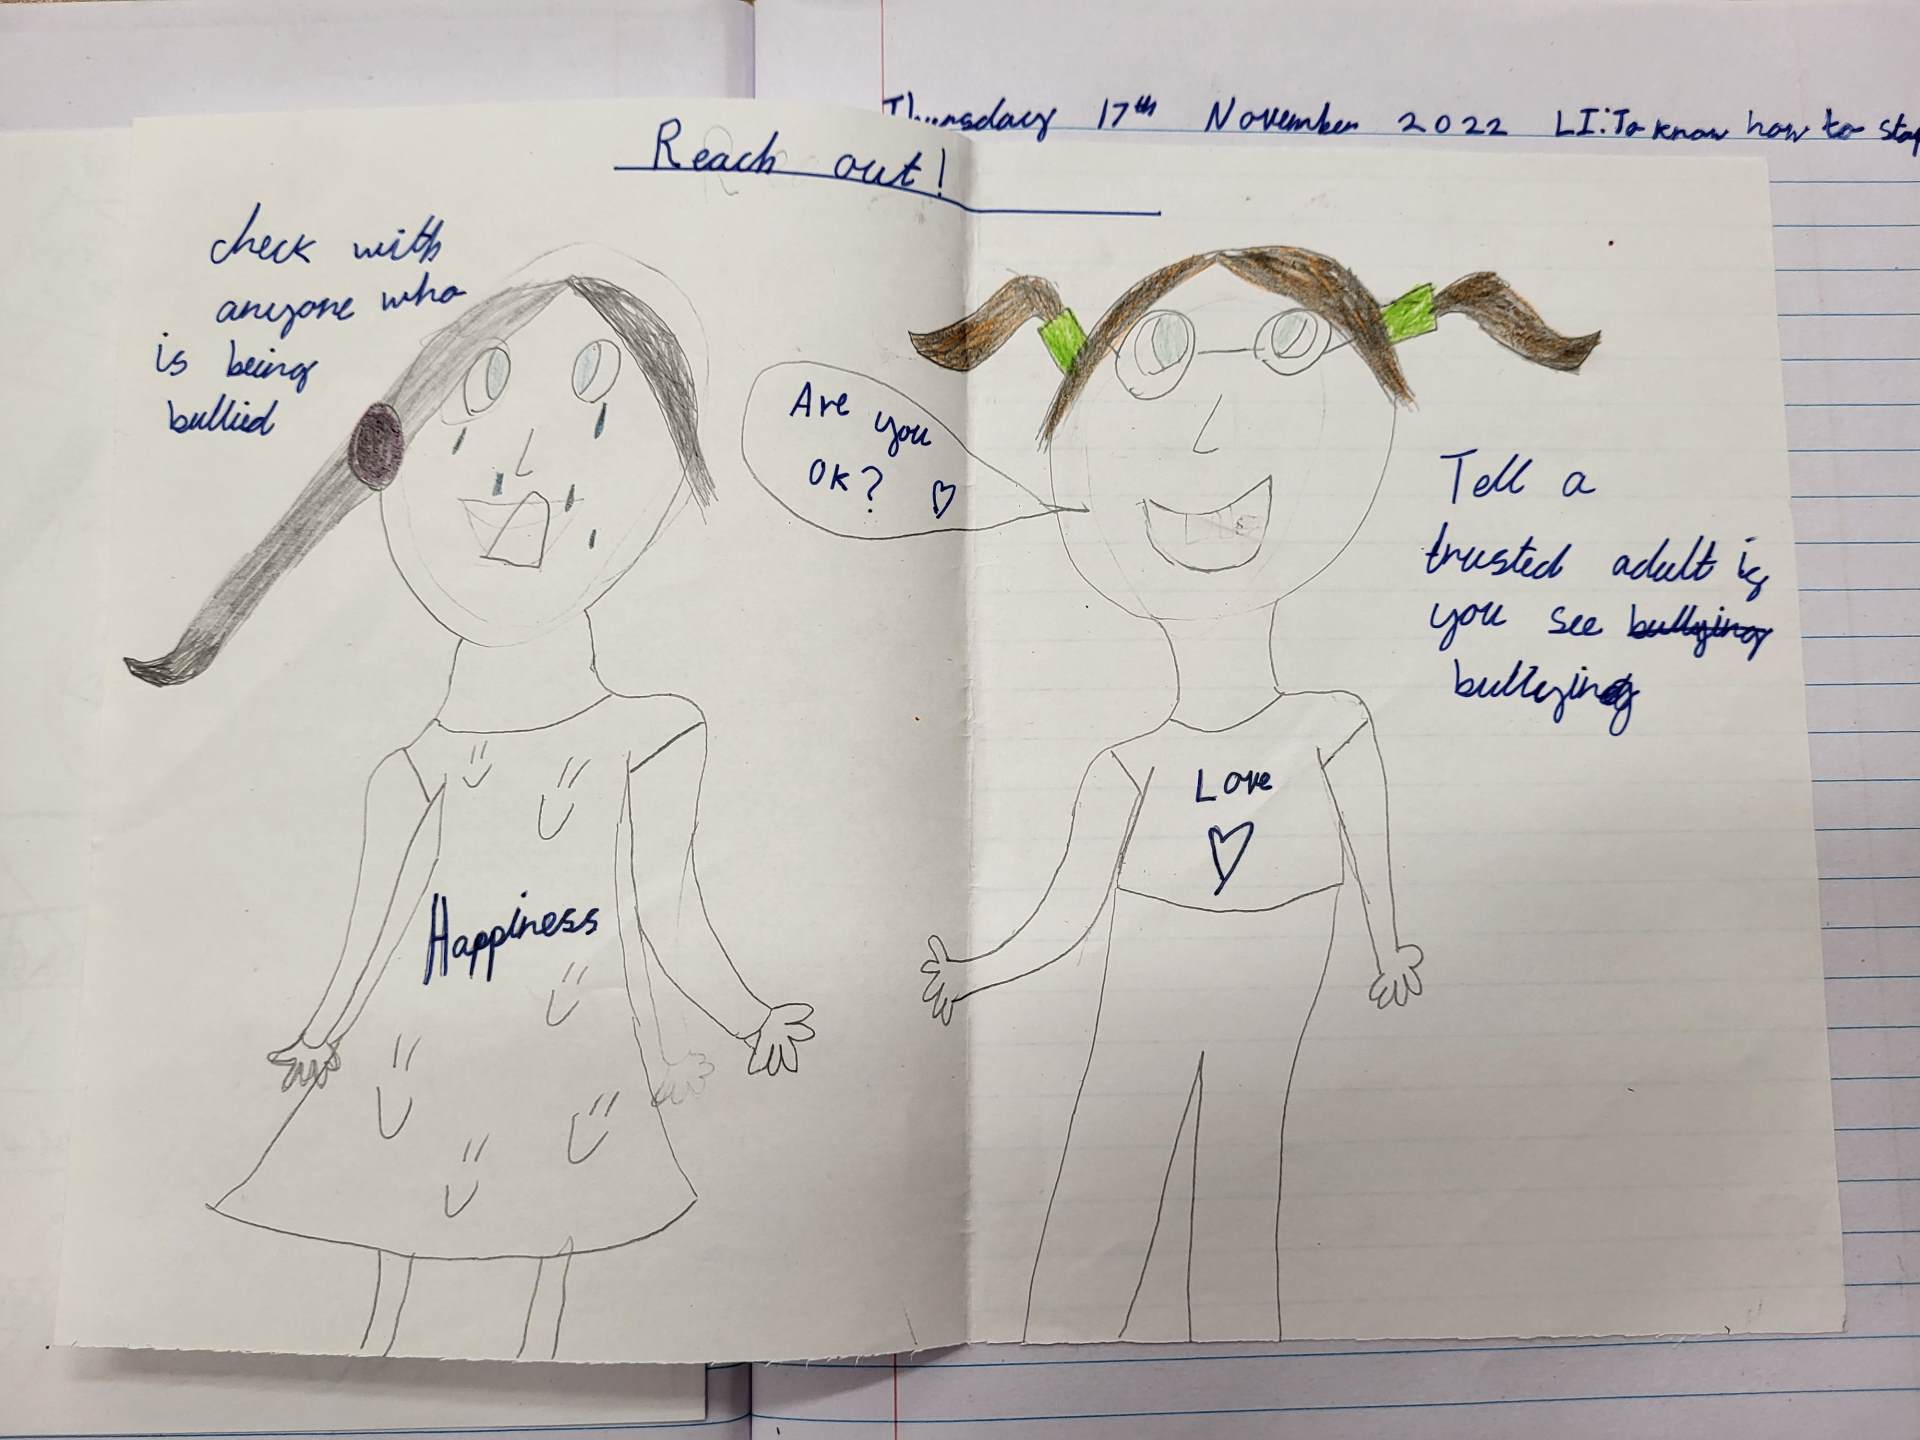 Thursday 17th November 2022 LI: To know how to stop
Reach out!
check with
anyone who
is being
bullied
Are you
OK?
Tell a
trusted adult if
you see bullying
bullying
Love
Happiness